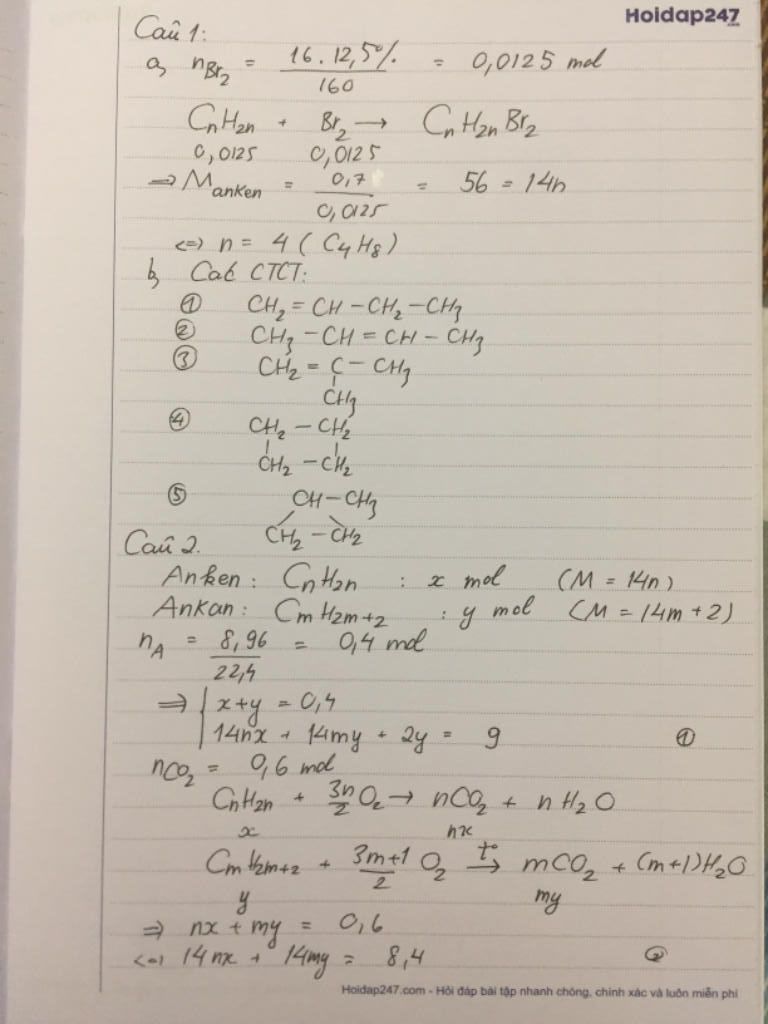 Hoidap247.com
Câu 1:
a, nBr2 = 16.12,5% / 160 = 0,0125 mol
CnH2n + Br2 → CnH2nBr2
0,0125 0,0125
=> Manken = 0,7 / 0,0125 = 56 = 14n
<=> n = 4 (C4H8)
b, Các CTCT:
① CH2 = CH - CH2 - CH3
② CH3 - CH = CH - CH3
③ CH2 = C - CH3
CH3
④ CH2 - CH2
CH2 - CH2
⑤ CH - CH3
CH2 - CH2
Câu 2.
Anken: CnH2n : x mol (M = 14n)
Ankan: CmH2m+2 : y mol (M = 14m + 2)
nA = 8,96 / 22,4 = 0,4 mol
=> { x+y = 0,4
14nx + 14my + 2y = 9 ①
nCO2 = 0,6 mol
CnH2n + 3n/2 O2 → nCO2 + nH2O
x nx
CmH2m+2 + 3m+1/2 O2 t° → mCO2 + (m+1)H2O
y my
=> nx + my = 0,6
<=> 14nx + 14my = 8,4 ②
Hoidap247.com - Hỏi đáp bài tập nhanh chóng, chính xác và luôn miễn phí